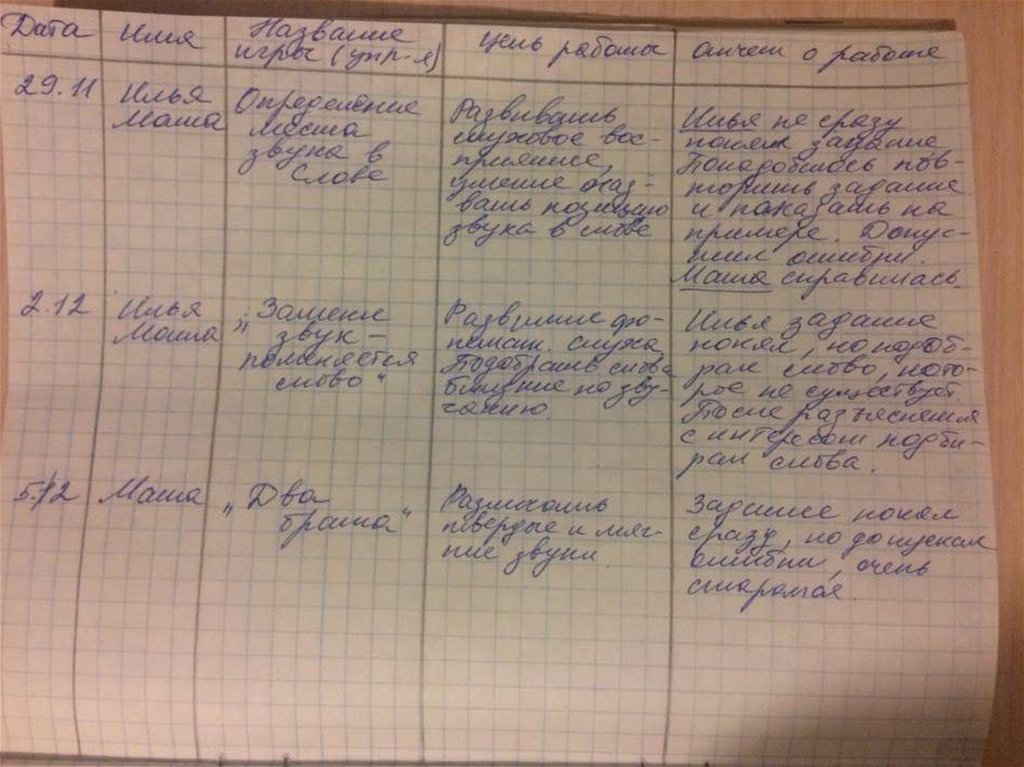 Дата
Имя
Название
игры (упр-я)
Цель работы
Отчет о работе
29.11
Илья
Маша
Определение
места
звука в
слове
Развивать
слуховое вос-
приятие,
умение наз-
вать позицию
звука в слове
Илья не сразу
понял задание
Понадобилось пов-
торить задание
и показать на
примере. Допус-
тил ошибки.
Маша справилась.
2.12
Илья
Маша
„Замени
звук –
поменяется
слово“
Развитие фо-
немат. слуха
Подобрать слова
близкие по зву-
чанию.
Илья задание
понял, но подоб-
рал слово, кото-
рое не существует.
После разъяснения
с интересом подби-
рал слова.
5.12
Маша
„Два
брата“
Различать
твердые и мяг-
кие звуки
Задание понял
сразу, но допускал
ошибки, очень
старался.